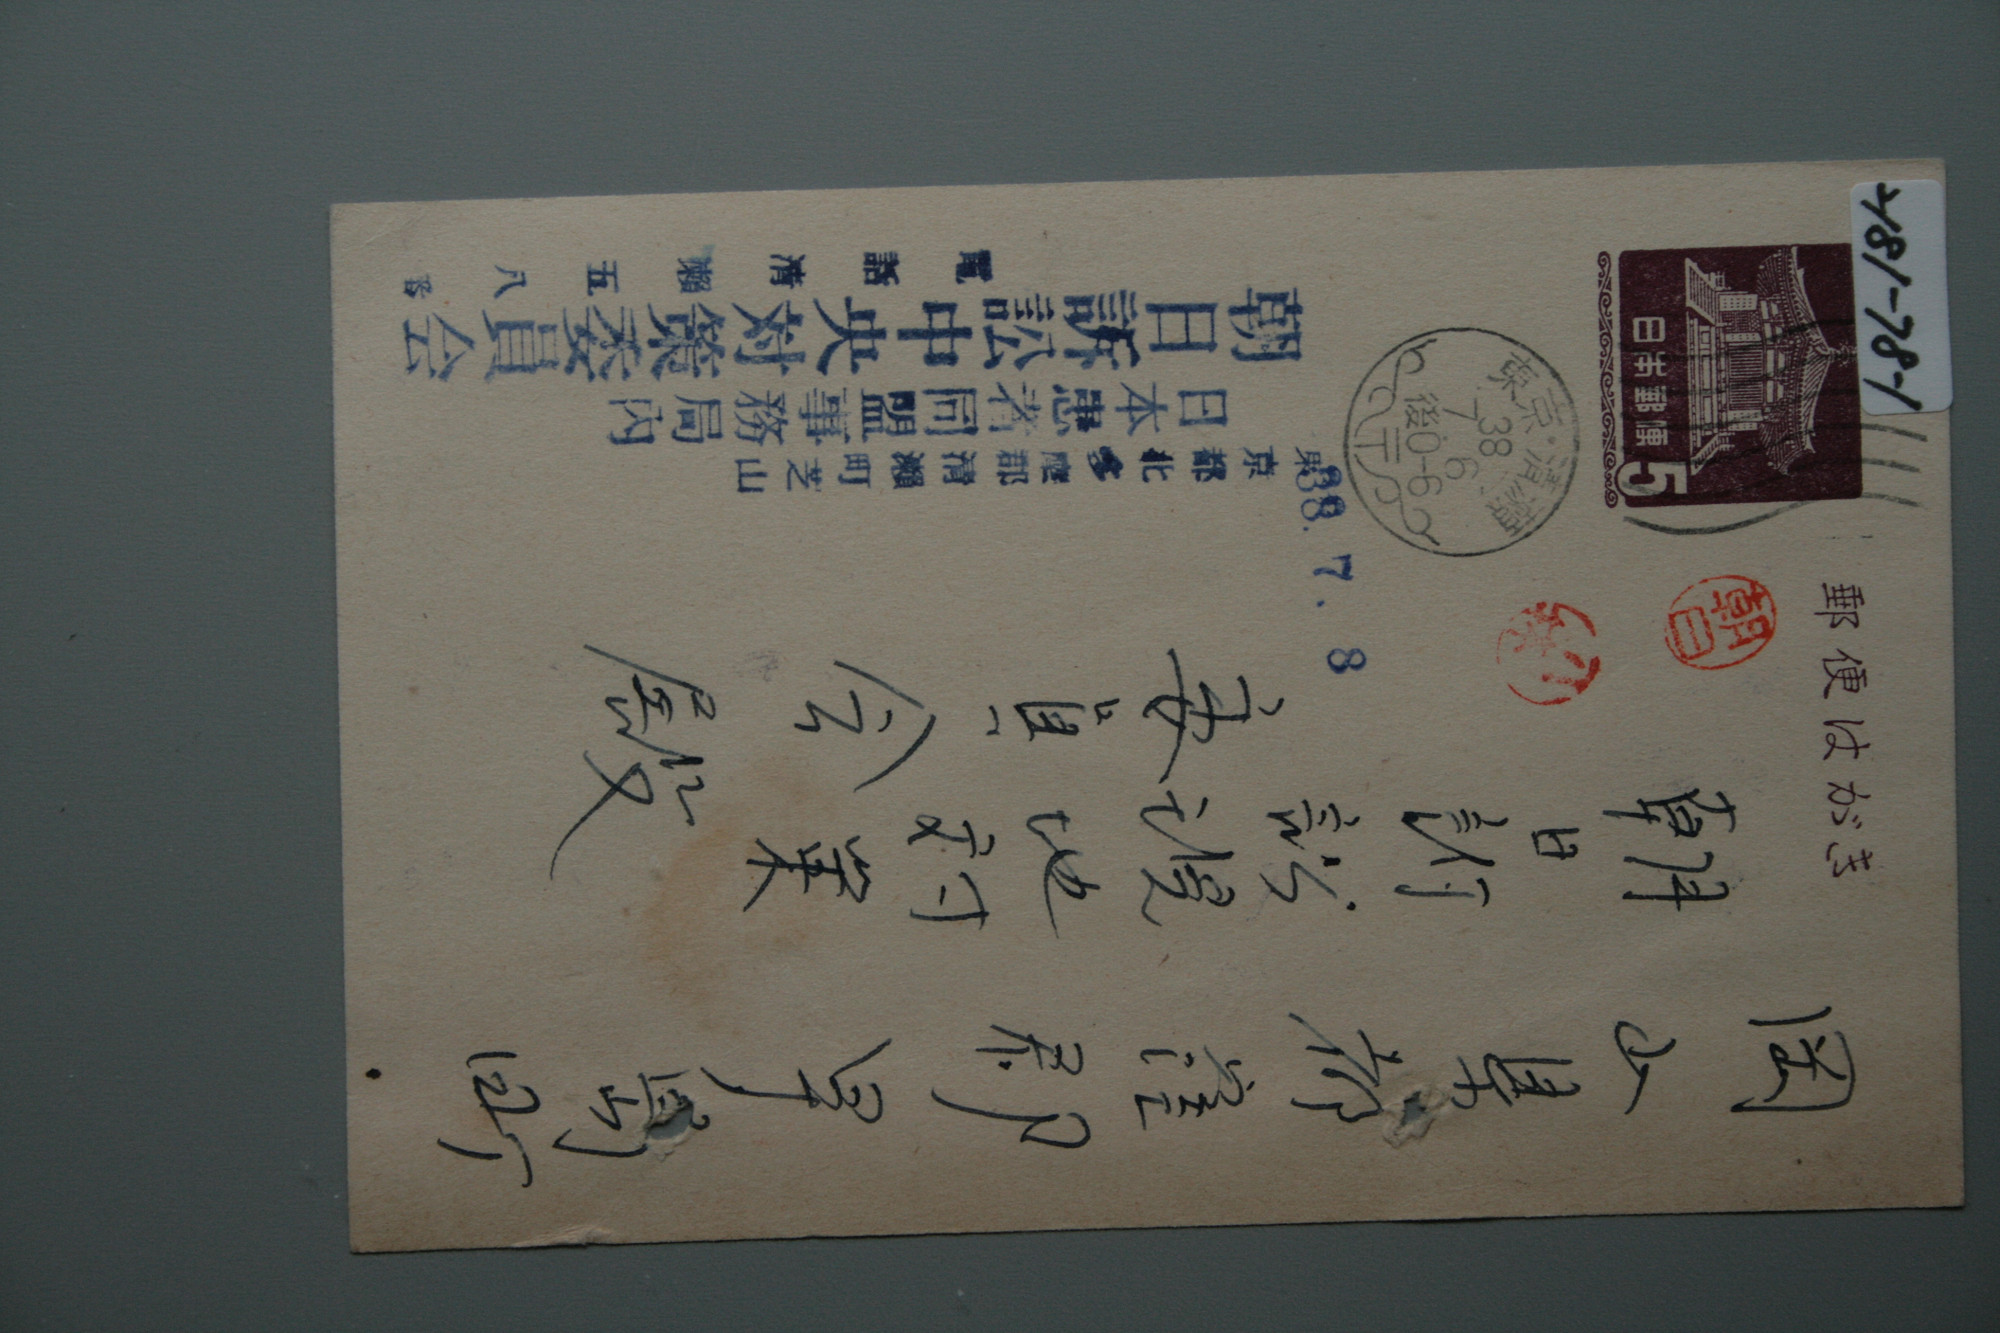 481-78-1
郵便はがき
日本郵便
5
東京・清瀬
38
7 6
後0-6
朝日
岡山県都窪郡早島町
朝日訴訟現地対策
委員会殿
38.7.8
東京都北多摩郡清瀬町芝山
日本患者同盟事務局内
朝日訴訟中央対策委員会
電話清瀬五八番